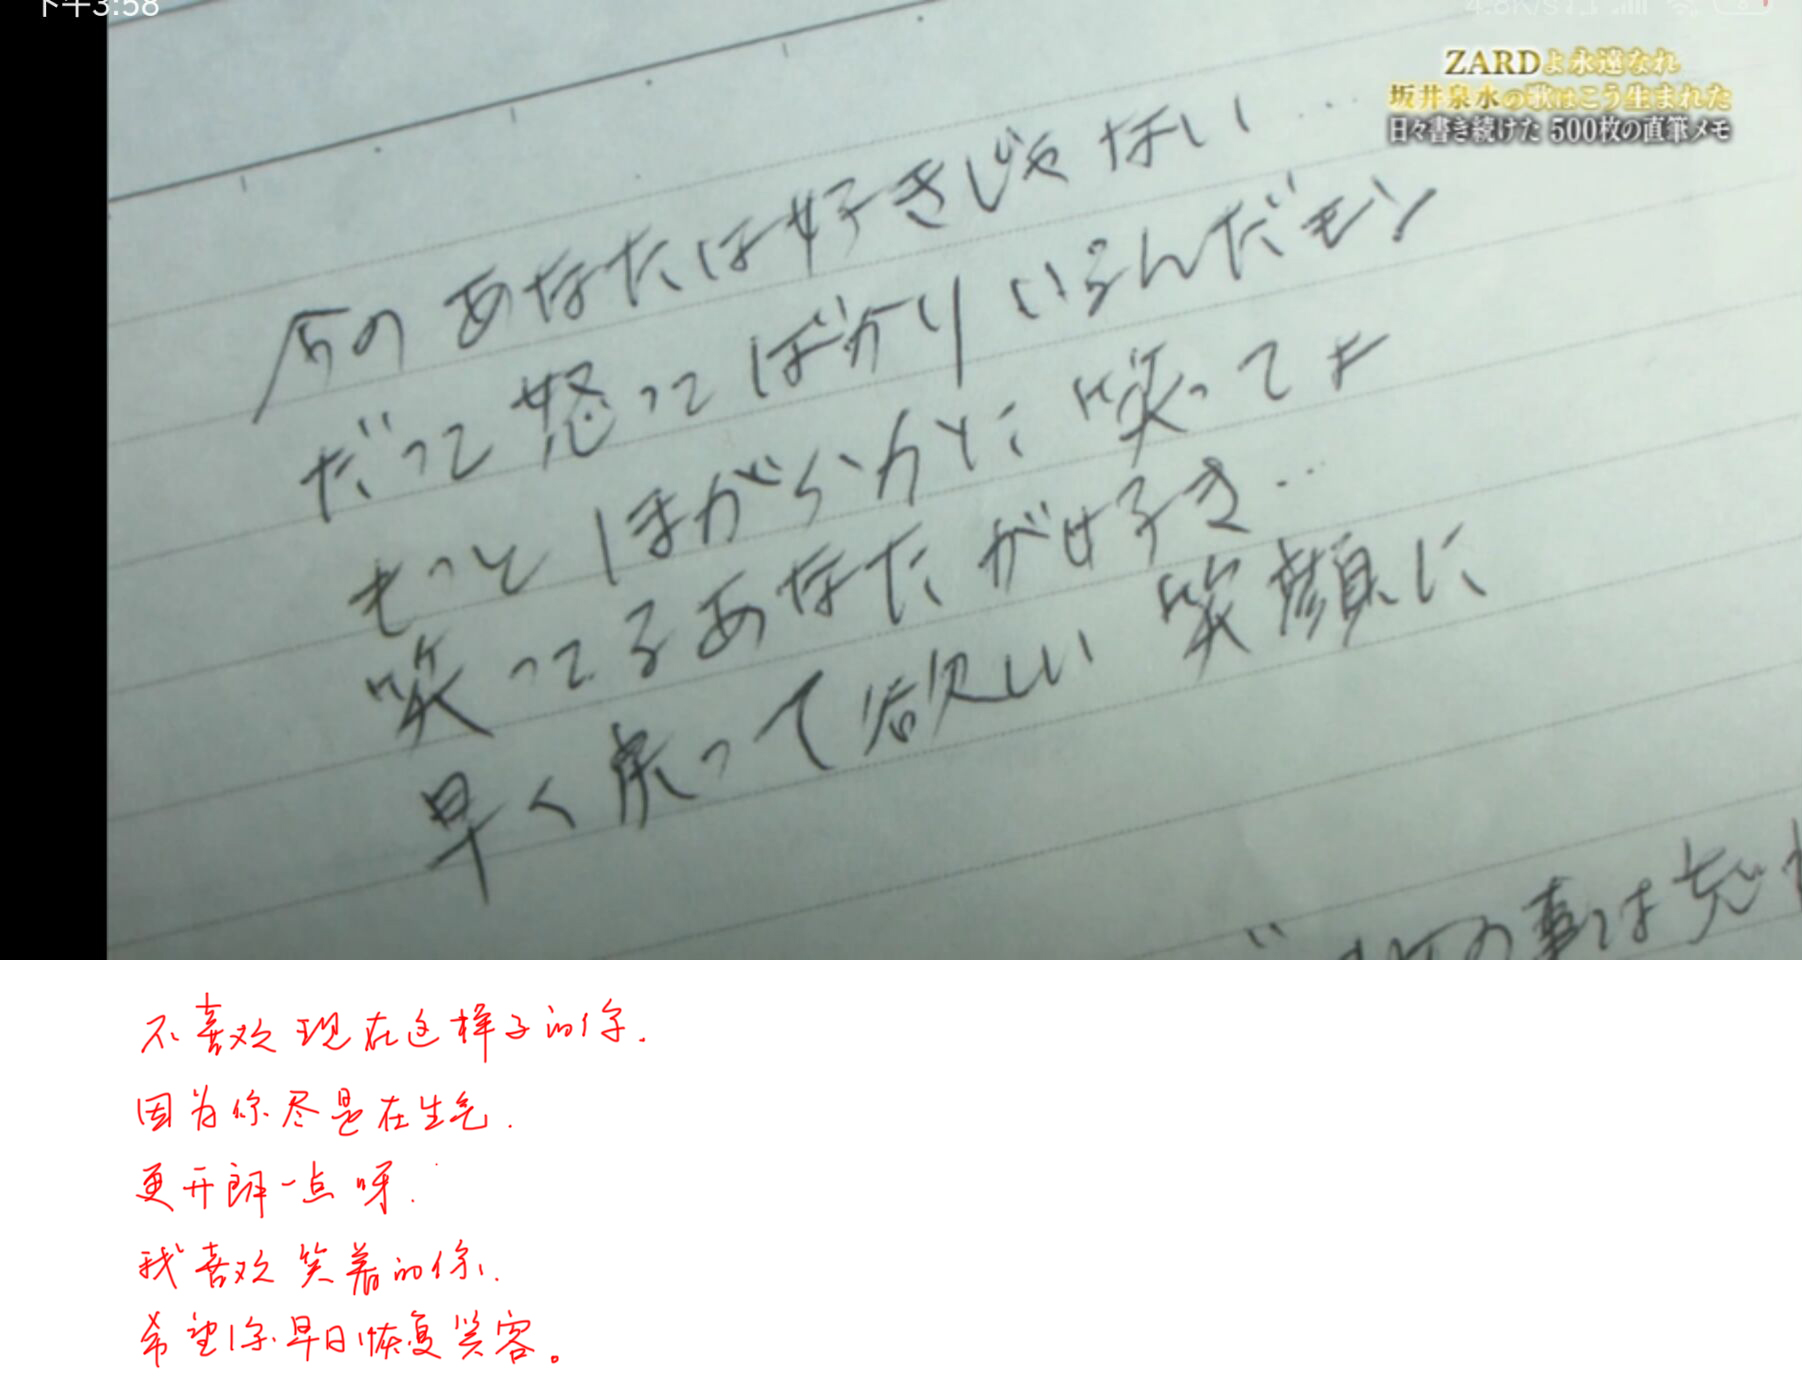 下午3:58
4.8K/s
ZARDよ永遠なれ
坂井泉水の歌はこう生まれた
日々書き続けた 500枚の直筆メモ
今のあなたは好きじゃない…
だって怒ってばかりいるんだモン
もっとほがらかに笑ってよ
笑ってるあなたが好き…
早く戻って欲しい 笑顔に
の事は忘
不喜欢现在这样子的你.
因为你尽是在生气.
更开朗一点呀.
我喜欢笑着的你.
希望你早日恢复笑容。